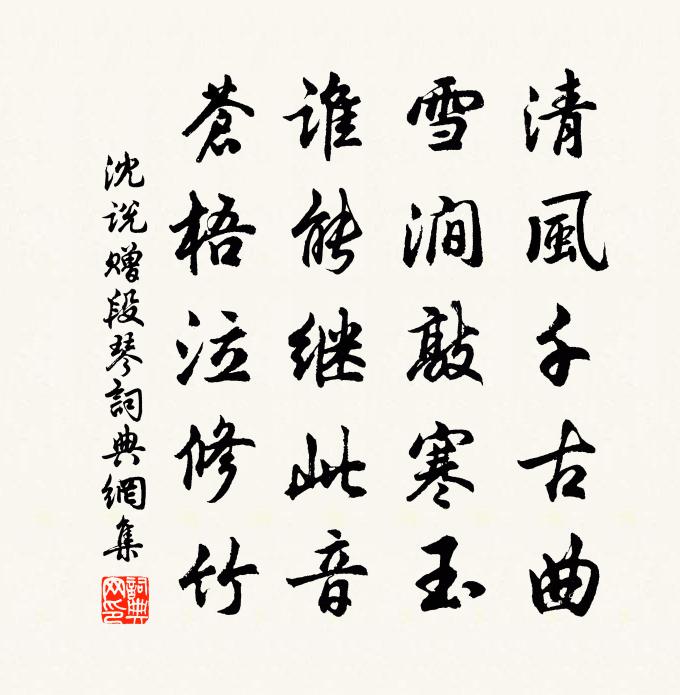 清風千古曲
雪澗敲寒玉
誰能继此音
蒼梧泣修竹
沈说贈段琴詞典網集
詞典網印